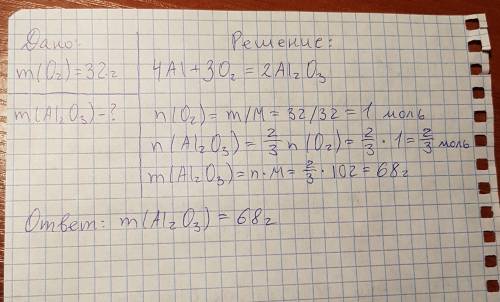 Дано:
m(O₂)=32 г
m(Al₂O₃)-?
Решение:
4Al+3O₂=2Al₂O₃
n(O₂)=m/M=32/32=1 моль
n(Al₂O₃)=2/3 n(O₂)=2/3·1=2/3 моль
m(Al₂O₃)=n·M=2/3·102=68г
Ответ: m(Al₂O₃)=68г